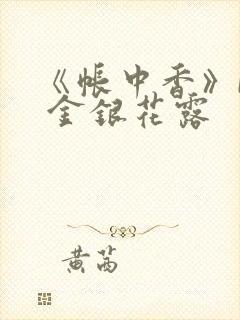 《帐中香》
金银花露
黄芮